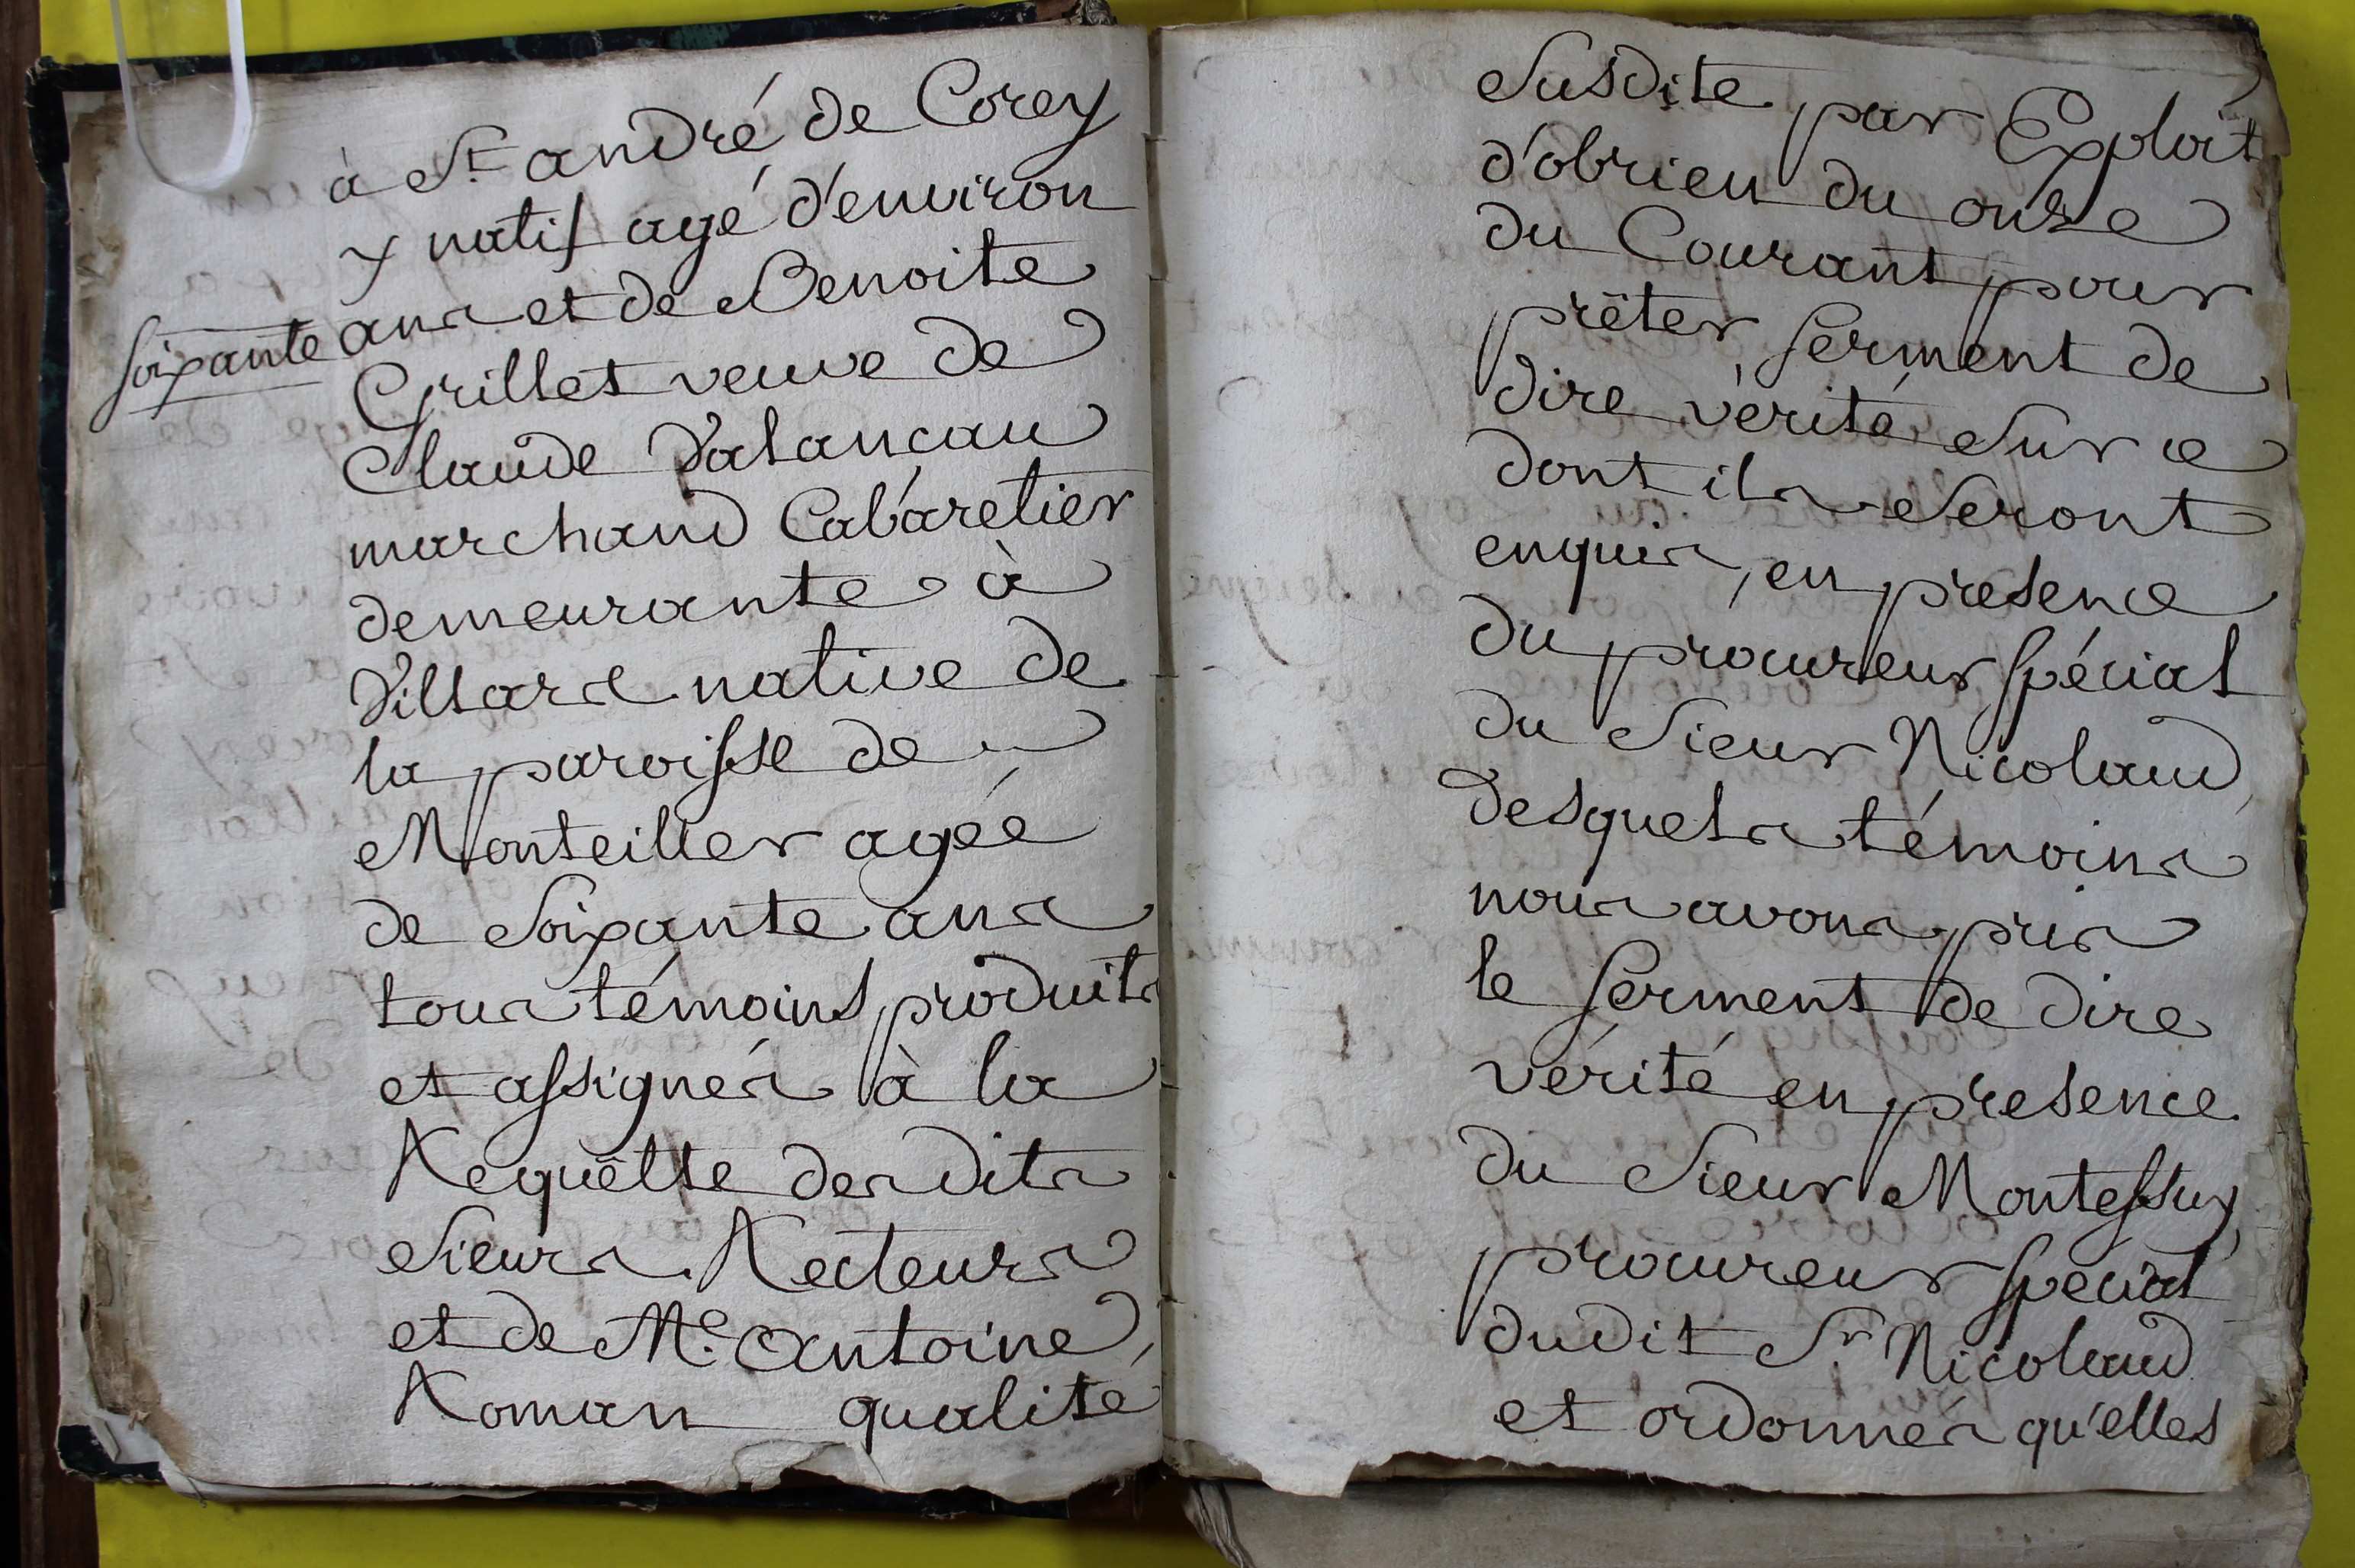 à St andré de Corcy
y natif agé d'environ
soixante ans et de Benoite
Grillet veuve de
Claude Valancau
marchand Cabaretier
demeurante à
Villars native de
la paroisse de
Monteiller agée
de soixante ans
tous témoins produits
et assignés à la
Requêtte des dits
Sieurs Recteurs
et de Me. Antoine
Roman qualité
Susdite par Exploit
d'obrieu du onze
du Courant pour
prêter serment de
dire vérité sur ce
dont ils seront
enquis, en presence
du procureur spécial
du Sieur Nicolaud,
desquels témoins
nous avons pris
le serment de dire
vérité en presence
du Sieur Montessuy,
procureur spécial
dudit Sr Nicolaud
et ordonnés qu'elles